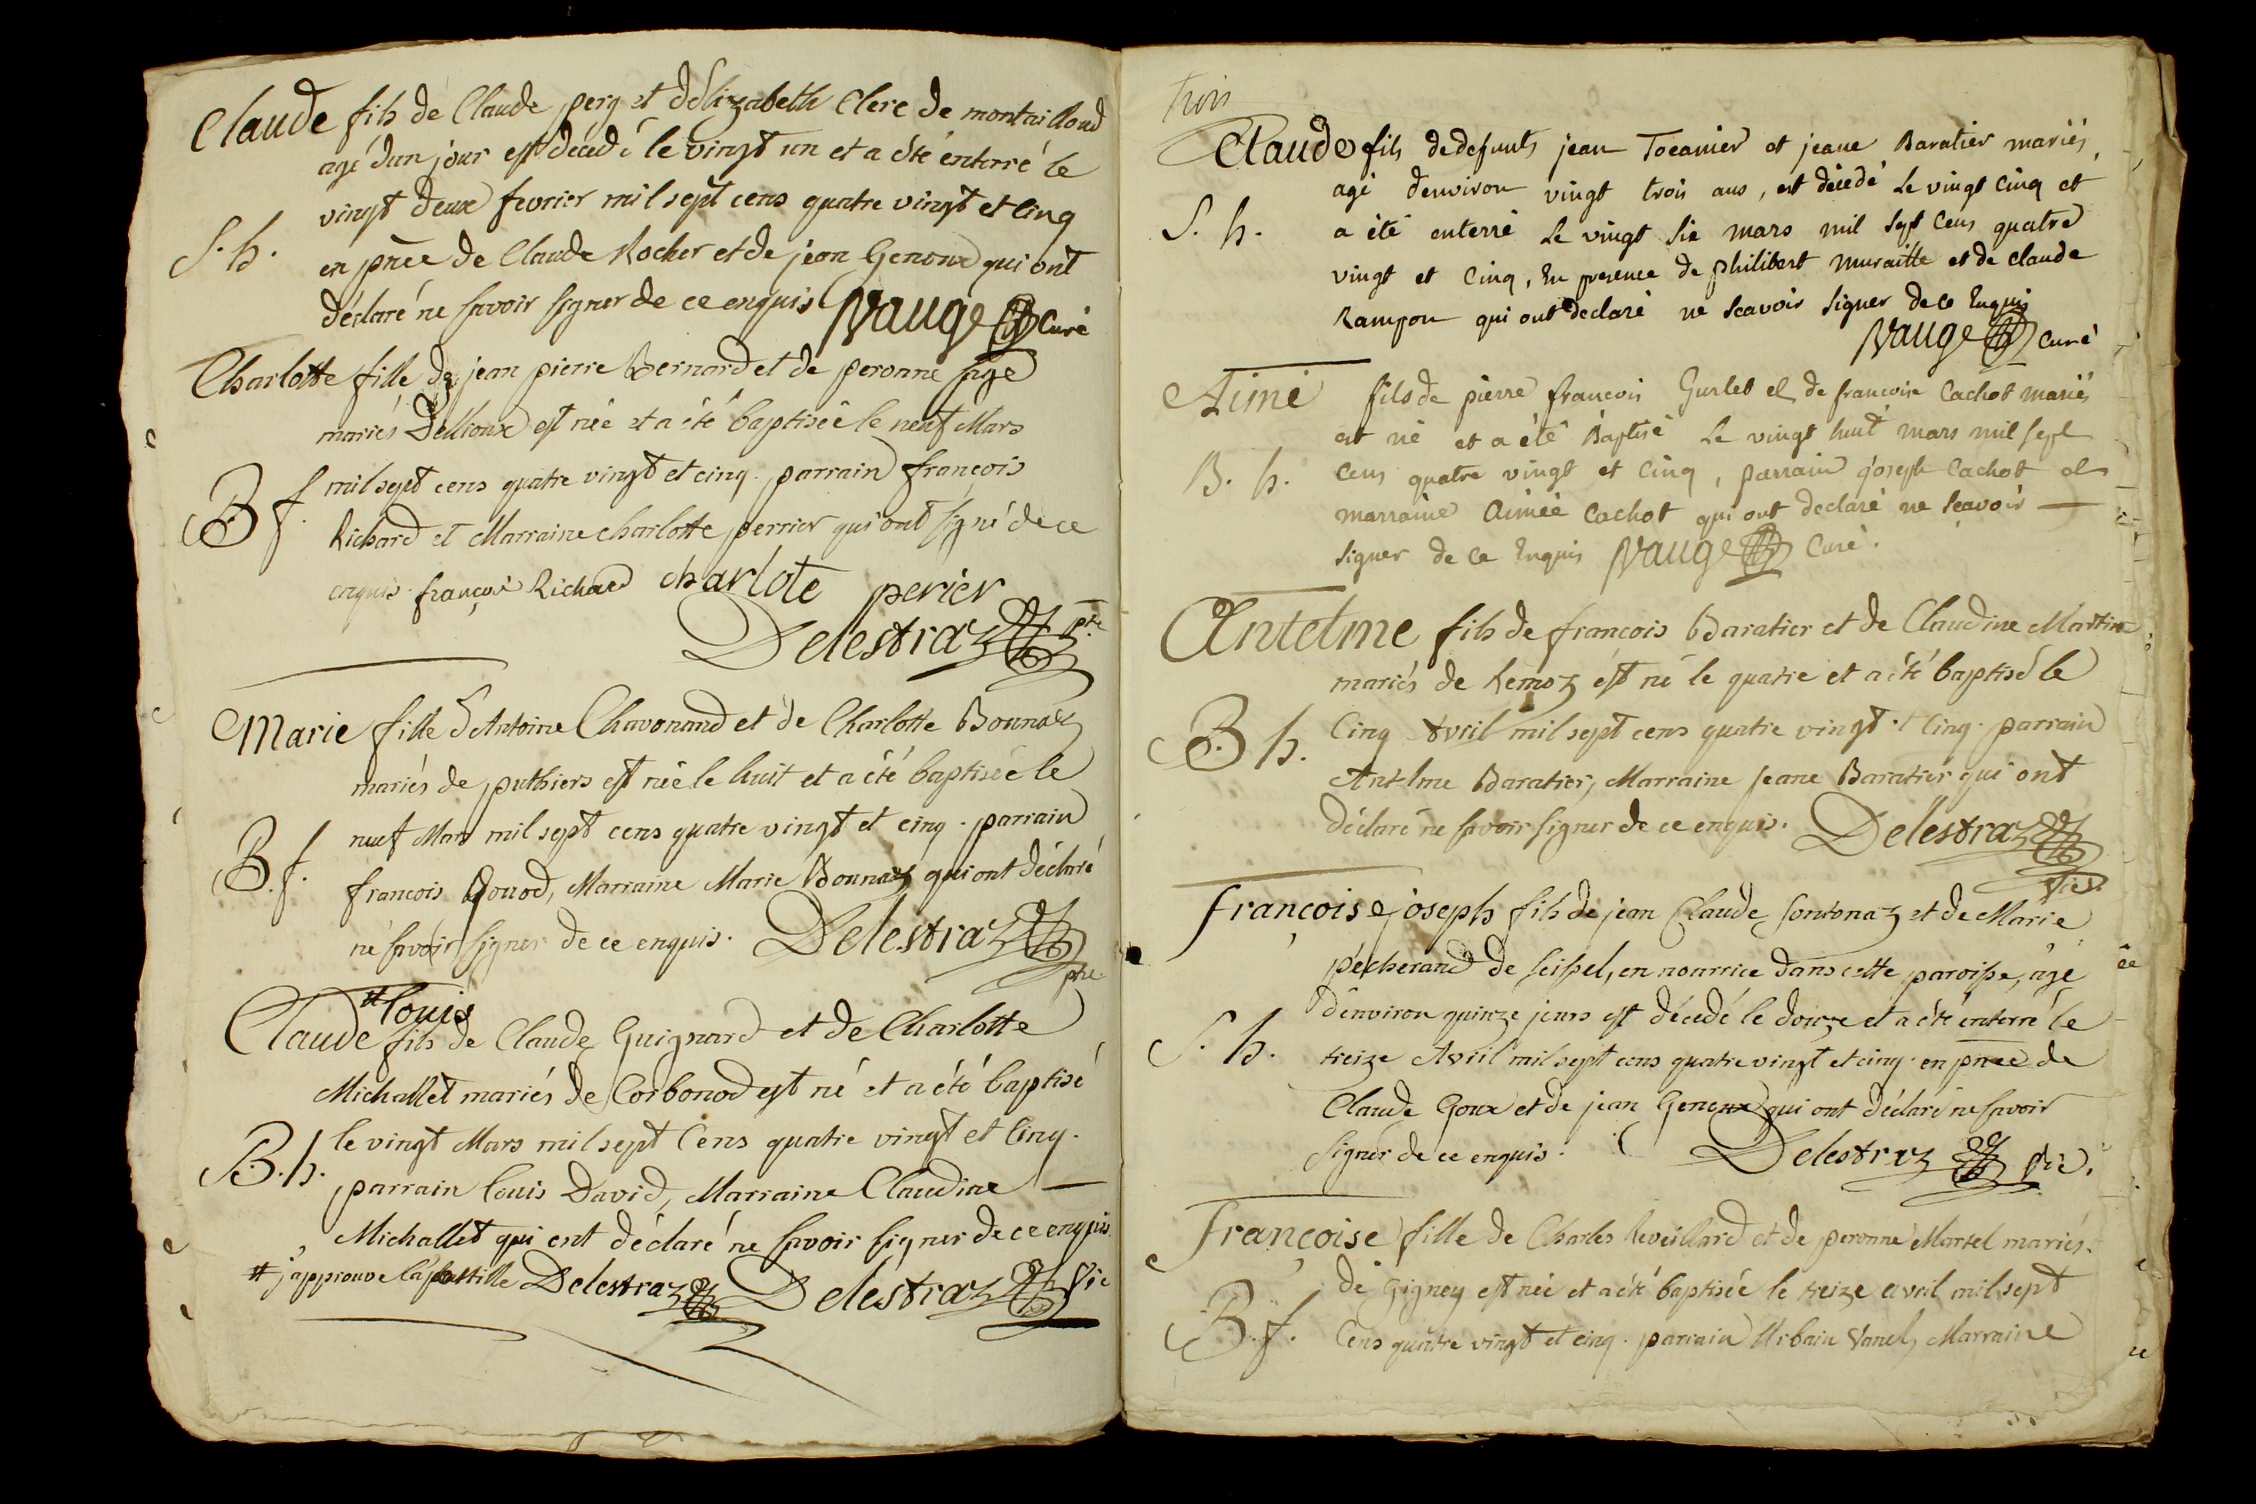 Claude fils de Claude pery et d'Elizabeth Clerc de montailloud
agé d'un jour est décédé le vingt un et a été enterré le
vingt deux fevrier mil sept cens quatre vingt et cinq
S. h.
en pñce de Claude Rocher et de jean Genoux qui ont
déclaré ne savoir signer de ce enquis Vauge Curé
Charlotte fille de jean pierre Bernard et de peronne sage
mariés est née et a été baptisée le neuf Mars
B f.
mil sept cens quatre vingt et cinq. parrain françois
Richard et Marraine charlotte perrier qui ont signé de ce
enquis. françois Richard charlote perier
Delestraz ptre
Marie fille d'Antoine Chavonand et de Charlotte Bonnaz
mariés de puthiers est née le huit et a été baptisée le
B. f.
neuf Mars mil sept cens quatre vingt et cinq. parrain
francois Gouod, Marraine Marie Bonnaz qui ont déclaré
ne savoir signer de ce enquis. Delestraz
ptre
# louis
Claude fils de Claude Guignard et de Charlotte
Michallet mariés de Corbonod est né et a été baptisé
B. h.
le vingt Mars mil sept Cens quatre vingt et Cinq.
parrain louis David, Marraine Claudine —
Michallet qui ont déclaré ne savoir signer de ce enquis.
# j'approuve l'apostille Delestraz Delestraz Vic
trois
Claude fils de defunts jean Tocanier et jeane Baratier mariés,
agé d'environ vingt trois ans, est décedé Le vingt Cinq et
S. h.
a été enterré Le vingt Six mars mil sept Cens quatre
vingt et Cinq, En presence de philibert muraille et de claude
Rampon qui ont declaré ne Scavoir Signer de ce Enquis
Vauge Curé
Aimé fils de pierre françois Gurlet et de francoise Cachot mariés
est né et a été Baptisé Le vingt huit mars mil sept
B. h.
Cens quatre vingt et Cinq, parrain joseph Cachot et
marraine Aimée Cachot qui ont declaré ne Scavoir —
Signer de Ce Enquis Vauge Curé.
Antelme fils de francois Baratier et de Claudine Martin
mariés de Remoz est né le quatre et a été baptisé le
B. h.
Cinq Avril mil sept cens quatre vingt et Cinq. parrain
Antelme Baratier, Marraine jeane Baratier qui ont
déclaré ne savoir signer de ce enquis. Delestraz
Vic.
françois joseph fils de jean Claude et de Marie
pécherand de seissel, en nourrice dans cette paroisse, agé
d'environ quinze jours est décedé le douze et a été enterré le
S. h.
treize Avril mil sept cens quatre vingt et cinq. en pñce de
Claude Goux et de jean Genoux qui ont déclaré ne savoir
signer de ce enquis. Delestraz Vic.
françoise fille de Charles Reveillard et de peronne Martel mariés.
de Gigney est née et a été baptisée le treize avril mil sept
B. f.
Cens quatre vingt et cinq. parrain Urbain Vanel, Marraine